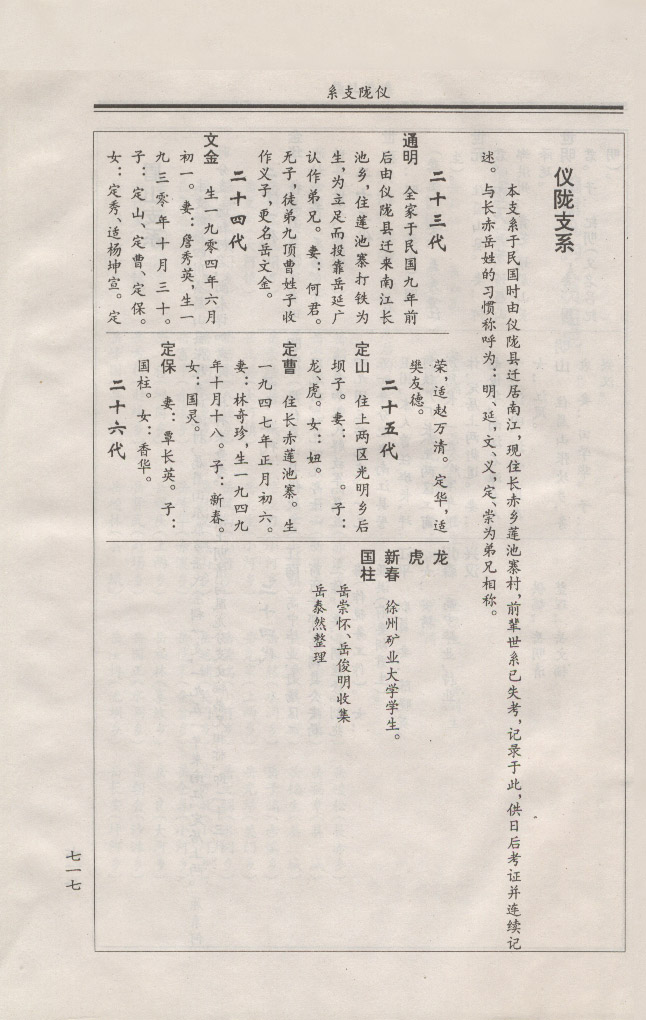 系支陇仪
仪陇支系
本支系于民国时由仪陇县迁居南江，现住长赤乡莲池寨村，前辈世系已失考，记录于此，供日后考证并连续记
述。与长赤岳姓的习惯称呼为：明、延，文、义，定、崇为弟兄相称。
二十三代
通明　全家于民国九年前
后由仪陇县迁来南江长
池乡，住莲池寨打铁为
生，为立足而投靠岳延广
认作弟兄。妻：何君。
无子，徒弟九顶曹姓子收
作义子，更名岳文金。
二十四代
文金　生一九零四年六月
初一。妻：詹秀英，生一
九三零年十月三十。
子：定山、定曹、定保。
女：定秀、适杨坤宣。定
荣，适赵万清。定华，适
樊友德。
二十五代
定山　住上两区光明乡后
坝子。妻：　　。子：
龙、虎。女：妞。
定曹　住长赤莲池寨。生
一九四七年正月初六。
妻：林奇珍，生一九四九
年十月十八。子：新春。
女：国灵。
定保　妻：覃长英。子：
国柱。女：香华。
二十六代
龙
虎
新春　徐州矿业大学学生。
国柱
岳崇怀、岳俊明收集
岳泰然整理
七一七